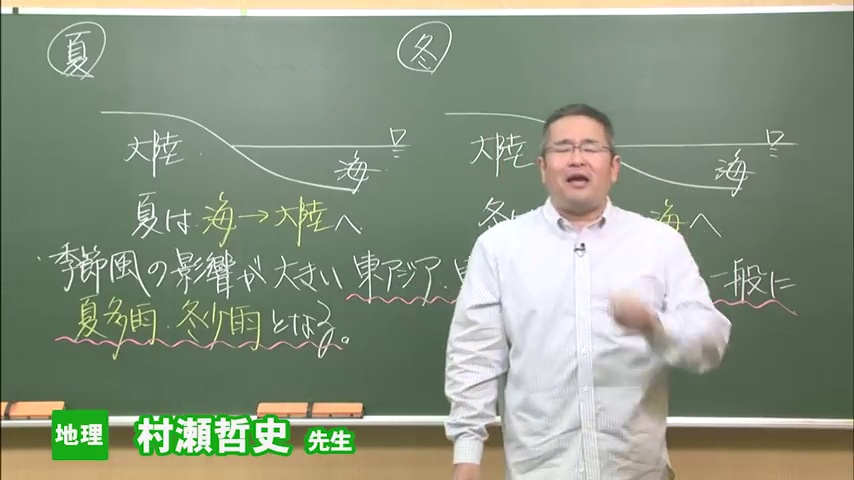 夏
冬
大陸
海
大陸
海
夏は 海→大陸へ
冬は
海へ
季節風の影響が大きい 東アジア・
一般に
夏多雨・冬少雨となる。
地理 村瀬哲史 先生